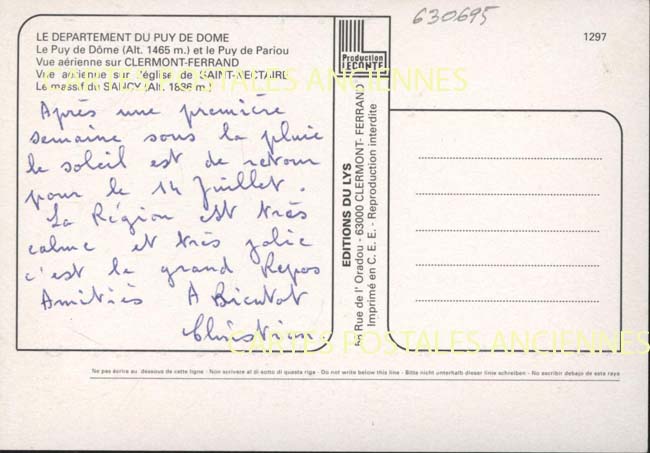 630695
LE DEPARTEMENT DU PUY DE DOME
Le Puy de Dôme (Alt. 1465 m.) et le Puy de Pariou
Vue aérienne sur CLERMONT-FERRAND
Vue aérienne sur l'église de SAINT-NECTAIRE
Le massif du SANCY (Alt. 1836 m.)
Production
LECONTE
1297
CARTES POSTALES ANCIENNES
Après une première
semaine sous la pluie
le soleil est de retour
pour le 14 Juillet.
La Région est très
calme et très jolie
c'est le grand Repos
Amitiés A Bientot
Christian
EDITIONS DU LYS
Rue de l'Oradou - 63000 CLERMONT-FERRAND
Imprimé en C. E. E. - Reproduction interdite
CARTES POSTALES ANCIENNES
Ne pas écrire au dessous de cette ligne - Non scrivere al di sotto di questa riga - Do not write below this line - Bitte nicht unterhalb dieser linie schreiben - No escribir debajo de esta raya